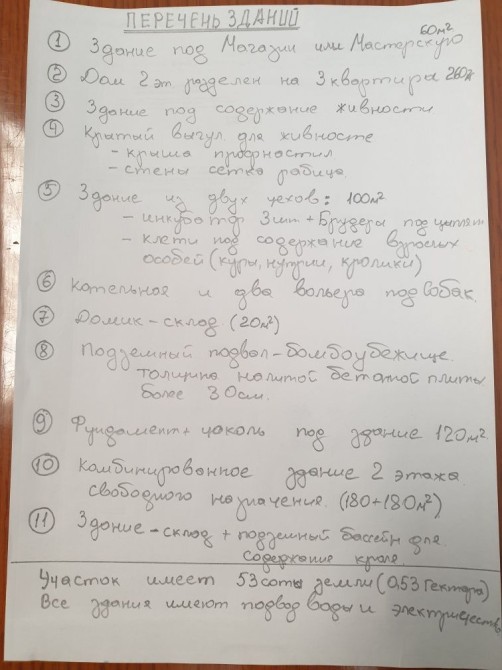 ПЕРЕЧЕНЬ ЗДАНИЙ
① Здание под Магазин или Мастерскую 60м²
② Дом 2 эт разделен на 3 квартиры 260м
③ Здание под содержание живности
④ Крытый выгул для живносте
- крыша профностил
- стены сетка рабица.
⑤ Здание из двух цехов: 100м²
- инкубатор 3шт + Брудеры под цыплят
- клети под содержание взрослых
особей (куры, нутрии, кролики)
⑥ Кательная и два вольера под собак.
⑦ Домик-склад. (20м²)
⑧ Подземный подвал-бомбоубежище.
толщина налитой бетоной плиты
более 30см.
⑨ Фундамент + цоколь под здание 120м².
⑩ Комбинированное здание 2 этажа
свободного назначения. (180+180м²)
⑪ Здание-склад + подземный бассейн для
содержания крапа.
Участок имеет 53 соты земли (0,53 Гектара)
Все здания имеют подвод воды и электричество